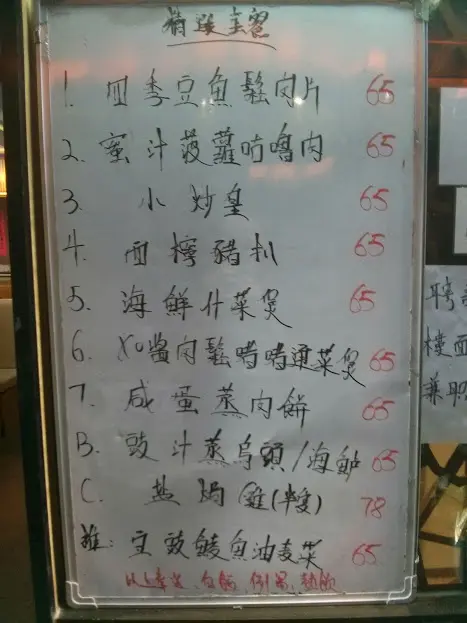 精選餐
1. 四季豆魚鬆肉片 65
2. 蜜汁菠蘿咕嚕肉 65
3. 小炒皇 65
4. 西檸豬扒 65
5. 海鮮什菜煲 65
6. XO醬肉鬆啫啫通菜煲 65
7. 咸蛋蒸肉餅 65
B. 豉汁蒸烏頭/海鱸 65
C. 盐焗雞(半隻) 78
推: 豆豉鯪魚油麦菜 65
白飯 例湯 熱飲
聘
樓面
兼職